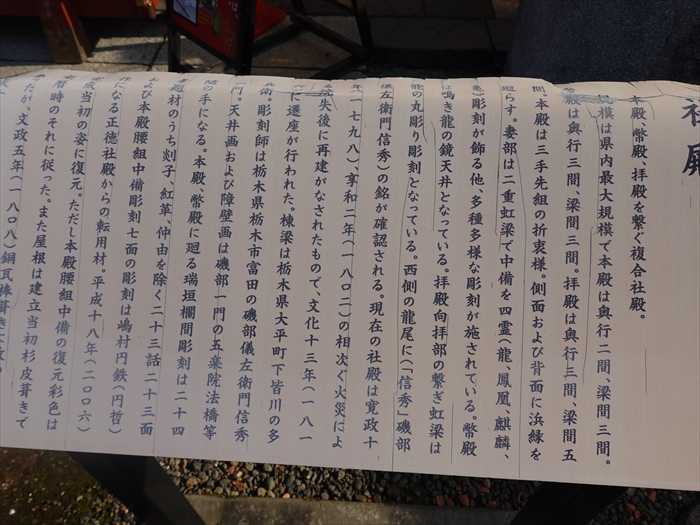 社殿
本殿、幣殿、拝殿を繋ぐ複合社殿。
規模は県内最大規模で本殿は奥行二間、梁間三間。
殿は奥行三間、梁間三間。拝殿は奥行三間、梁間五
間。本殿は三手先組の折衷様。側面および背面に浜縁を
廻らす。妻部は二重虹梁で中備を四霊(龍、鳳凰、麒麟、
亀)彫刻が飾る他、多種多様な彫刻が施されている。幣殿
は鳴き龍の鏡天井となっている。拝殿向拝部の繋ぎ虹梁は
龍の丸彫り彫刻となっている。西側の龍尾に(「信秀」磯部
儀左衛門信秀)の銘が確認される。現在の社殿は寛政十
年(一七九八)、享和二年(一八〇二)の相次ぐ火災によ
焼失後に再建がなされたもので、文化十三年(一八一
に遷座が行われた。棟梁は栃木県大平町下皆川の多
衛。彫刻師は栃木県栃木市富田の磯部儀左衛門信秀
門。天井画および障壁画は磯部一門の五楽院法橋等
随の手になる。本殿、幣殿に廻る瑞垣欄間彫刻は二十四
題材のうち剡子、紅革、仲由を除く二十三話二十三面
および本殿腰組中備彫刻七面の彫刻は嶋村円鉄(円哲)
になる正徳社殿からの転用材。平成十八年(二〇〇六)
成当初の姿に復元。ただし本殿腰組中備の復元彩色は
階時のそれに従った。また屋根は建立当初杉皮葺きで
たが、文政五年(一八〇八)銅瓦棒葺きに改